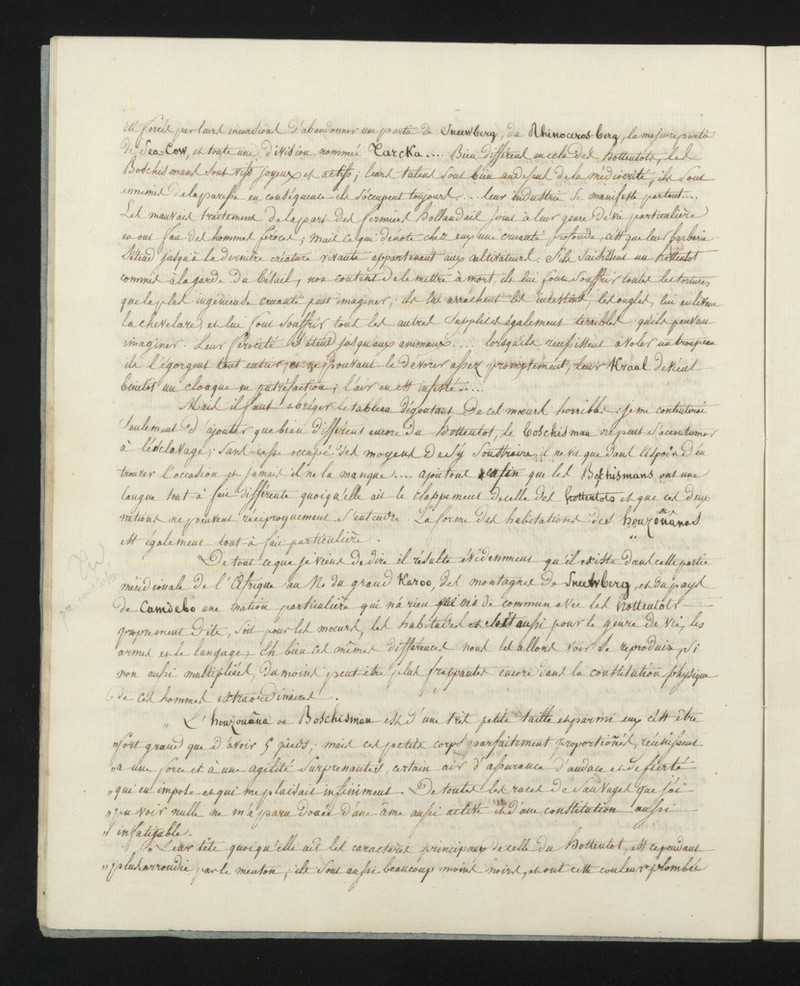 été forcés par leurs incursions d'abandonner une partie de Sneewberg, du Rhinoceros-berg, la majeure partie
de Sea-Cow, et toute une division nommée Tarcka... Bien différens en cela des hottentots, les
Boschismans sont vifs joyeux et actifs; leurs talens sont bien au dessus de la médiocrité, ils sont
ennemis de la paresse en conséquence ils s'occupent toujours... leur industrie se manifeste partout...
Les mauvais traitemens de la part des fermiers hollandais joint à leur genre de vie particulière
en ont fait des hommes féroces; mais ce qui dénote chez eux une cruauté profonde, c'est que leur barbarie
s'étend jusqu'à la dernière créature vivante appartenant aux cultivateurs. S'ils saisissent un hottentot
commis à la garde du bétail, non contens de le mettre à mort, ils lui font souffrir toutes les tortures
que la plus ingénieuse cruauté peut imaginer; ils lui arrachent les intestins, les ongles, lui enlèvent
la chevelure, et lui font souffrir tous les autres supplices également terribles qu'ils peuvent
imaginer. Leur férocité s'étend jusqu'aux animaux.... lorsqu'ils réussissent à voler un troupeau
ils l'égorgent tout entier, et ne pouvant le dévorer assez promptement, leur Kraal devient
bientôt un cloaque en putréfaction; l'air en est infesté....
Mais il faut abréger le tableau dégoutant de ces mœurs horribles: je me contenterai
seulement d'ajouter que bien différent encore du Hottentot, le boschisman ne peut s'accoutumer
à l'esclavage; sans-cesse occupé des moyens de s'y soustraire, il ne vit que dans l'espoir d'en
trouver l'occasion et jamais il ne la manque.... ajoutons enfin que les Boshismans ont une
langue tout à fait différente quoiqu'elle ait le clappement de celle des hottentots et que ces deux
nations ne peuvent réciproquement s'entendre. La forme des habitations des houzouânas
est également tout à fait particulière.
De tout ce que je viens de dire il résulte évidemment qu'il existe dans cette partie
méridionale de l'Afrique au N. du grand Karoo, des montagnes de Sneewberg, et du pays
de Camdebo une nation particulière qui n'a rien de commun avec les hottentots
proprement dits, soit pour les mœurs, les habitudes et c'est aussi pour le genre de vie, les
armes et le langage. Eh bien ces mêmes différences nous les allons voir se reproduire, si
non aussi multipliées, du moins peut être plus frappantes encore dans la constitution physique
de ces hommes extraordinaires.
" L'houzouâna ou Boschisman est d'une très petite taille et parmi eux c'est être
" fort grand que d'avoir 5 pieds; mais ces petits corps parfaitement proportionés, réunissent
" à une force et à une agilité surprenantes, certain air d'assurance d'audace et de fierté
" qui en impose et qui me plaisait infiniment. De toutes les races de sauvages que j'ai
" pu voir nulle ne m'a paru douée d'une âme aussi active et d'une constitution aussi
" infatigable.
" Leur tête quoiqu'elle ait les caractères principaux de celle du hottentot, est cependant
" plus arrondie par le menton; ils sont aussi beaucoup moins noirs, et ont cette couleur plombée